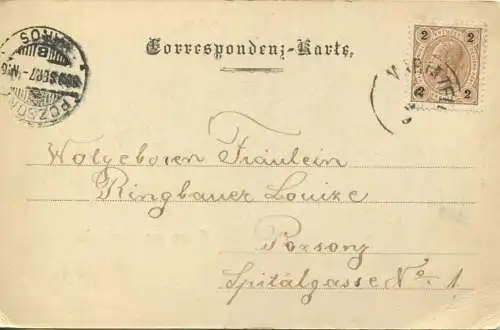 Correspondenz-Karte.
2 2
2 2
POZSONY
VÁROS
Wolgeboren Fräulein
Ringbauer Louize
Pozsony
Spitálgasse No. 1